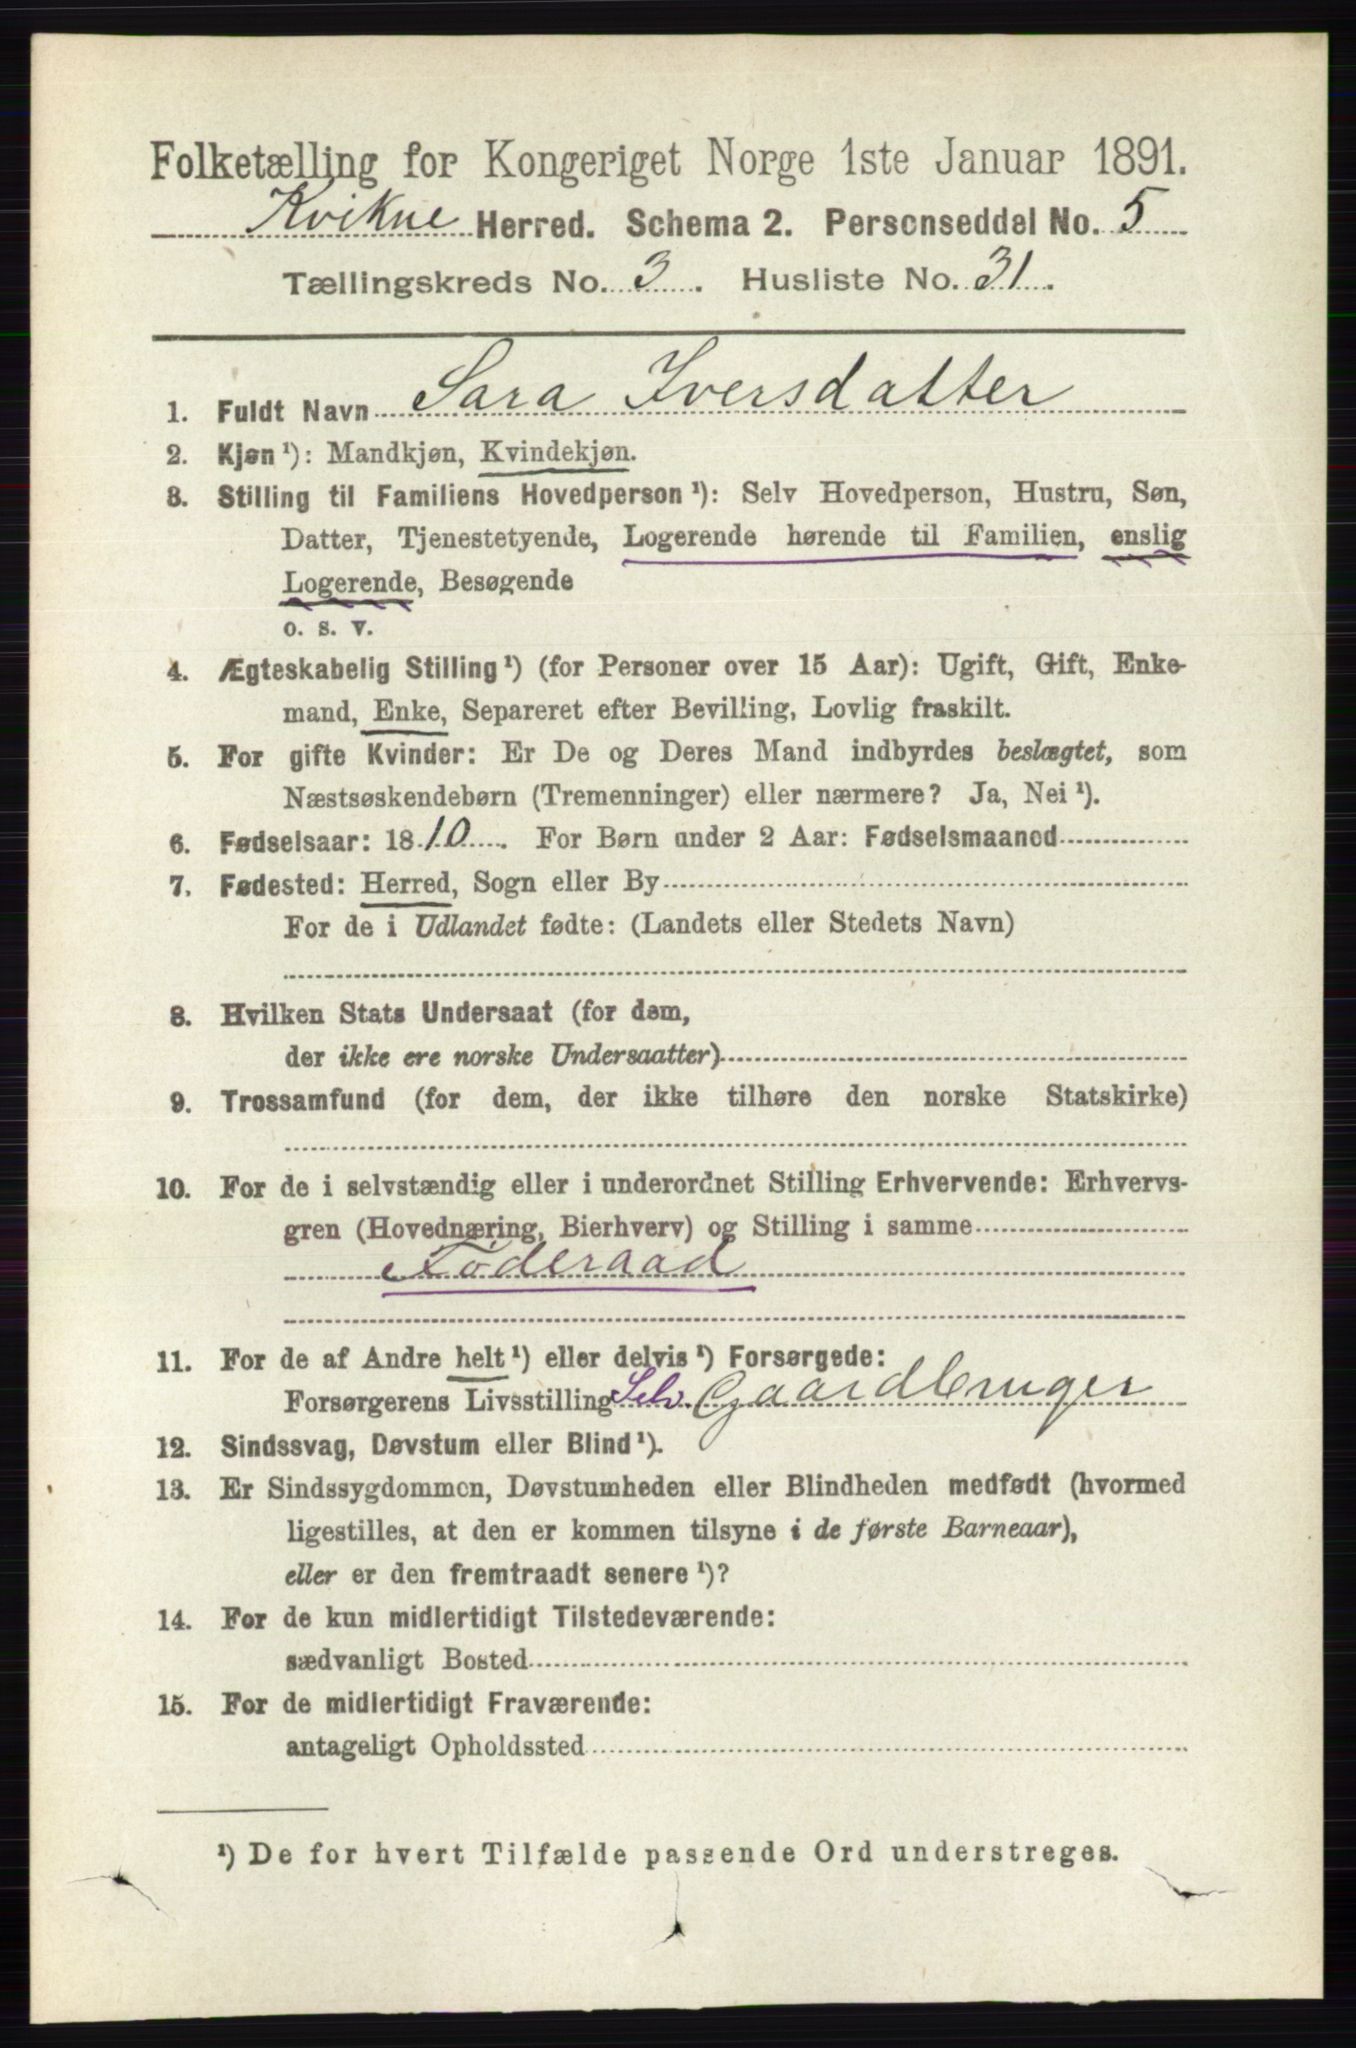 Folketælling for Kongeriget Norge 1ste Januar 1891.
Kvikne Herred. Schema 2. Personseddel No. 5
Tællingskreds No. 3. Husliste No. 31.
1. Fuldt Navn Sara Iversdatter
2. Kjøn¹): Mandkjøn, Kvindekjøn.
3. Stilling til Familiens Hovedperson¹): Selv Hovedperson, Hustru, Søn,
Datter, Tjenestetyende, Logerende hørende til Familien, enslig
Logerende, Besøgende
o. s. v.
4. Ægteskabelig Stilling¹) (for Personer over 15 Aar): Ugift, Gift, Enke-
mand, Enke, Separeret efter Bevilling, Lovlig fraskilt.
5. For gifte Kvinder: Er De og Deres Mand indbyrdes beslægtet, som
Næstsøskendebørn (Tremenninger) eller nærmere? Ja, Nei¹).
6. Fødselsaar: 1810. For Børn under 2 Aar: Fødselsmaaned
7. Fødested: Herred, Sogn eller By
For de i Udlandet fødte: (Landets eller Stedets Navn)
8. Hvilken Stats Undersaat (for dem,
der ikke ere norske Undersaatter)
9. Trossamfund (for dem, der ikke tilhøre den norske Statskirke)
10. For de i selvstændig eller i underordnet Stilling Erhvervende: Erhvervs-
gren (Hovednæring, Bierhverv) og Stilling i samme
Føderaad
11. For de af Andre helt¹) eller delvis¹) Forsørgede:
Forsørgerens Livsstilling Selv. Gaardbruger
12. Sindssvag, Døvstum eller Blind¹).
13. Er Sindssygdommen, Døvstumheden eller Blindheden medfødt (hvormed
ligestilles, at den er kommen tilsyne i de første Barneaar),
eller er den fremtraadt senere¹)?
14. For de kun midlertidigt Tilstedeværende:
sædvanligt Bosted
15. For de midlertidigt Fraværende:
antageligt Opholdssted
¹) De for hvert Tilfælde passende Ord understreges.